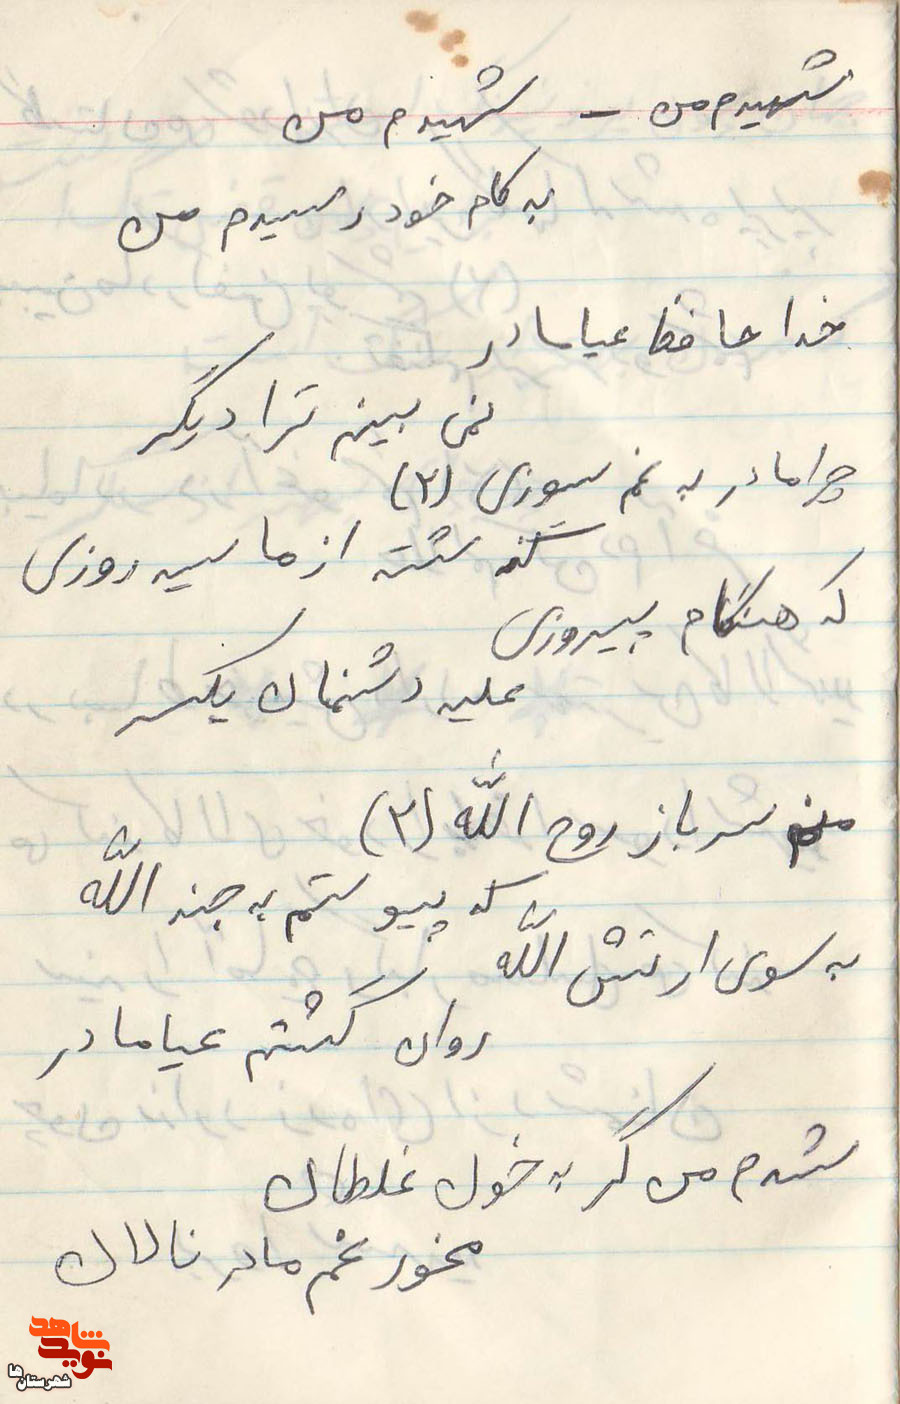 شهیدم من - شهیدم من
به کام خود رسیدم من
خدا حافظ عیا مادر
نمی بینم ترا دیگر
چرا مادر به غم سوزی (۲)
گذشته از ما سیه روزی
که هنگام پیروزی
علیه دشمنان یکسر
منم سرباز روح الله (۲)
که پیوستم به جند الله
به سوی ارتش الله
روان گشتم عیا مادر
شدم من گر به خون غلطان
مخور غم مادر نالان
نوید شاهد
شهرستان‌ها